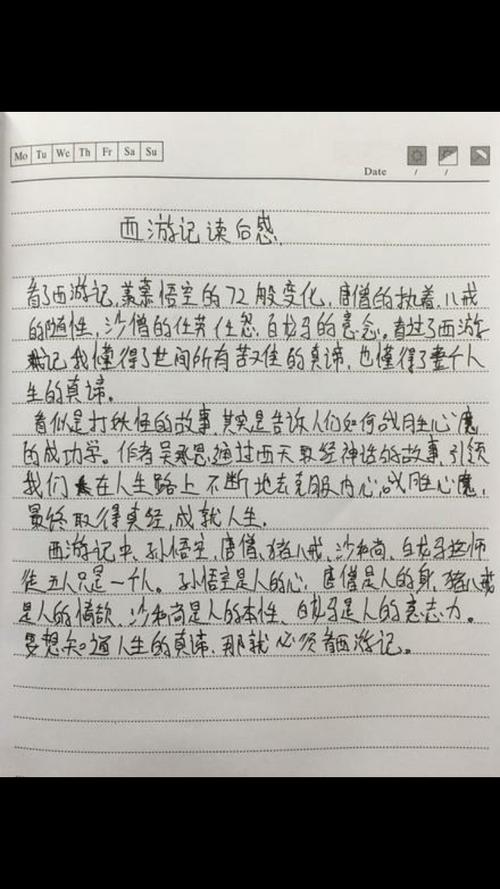 Mo Tu We Th Fr Sa Su
Date / /
西游记读后感
看了西游记,羡慕悟空的72般变化,唐僧的执着,八戒
的随性,沙僧的任劳任怨,白龙马的意念。看过了西游
记我懂得了世间所有苦难的真谛,也懂得了整个人
生的真谛。
看似是打妖怪的故事,其实是告诉人们如何战胜心魔
的成功学。作者吴承恩通过西天取经神话的故事,引领
我们在人生路上不断地去克服内心,战胜心魔,
最终取得真经,成就人生。
西游记中,孙悟空,唐僧,猪八戒,沙和尚,白龙马师
徒五人只是一个人。孙悟空是人的心,唐僧是人的身,猪八戒
是人的情欲,沙和尚是人的本性,白龙马是人的意志力。
要想知道人生的真谛,那就必须看西游记。